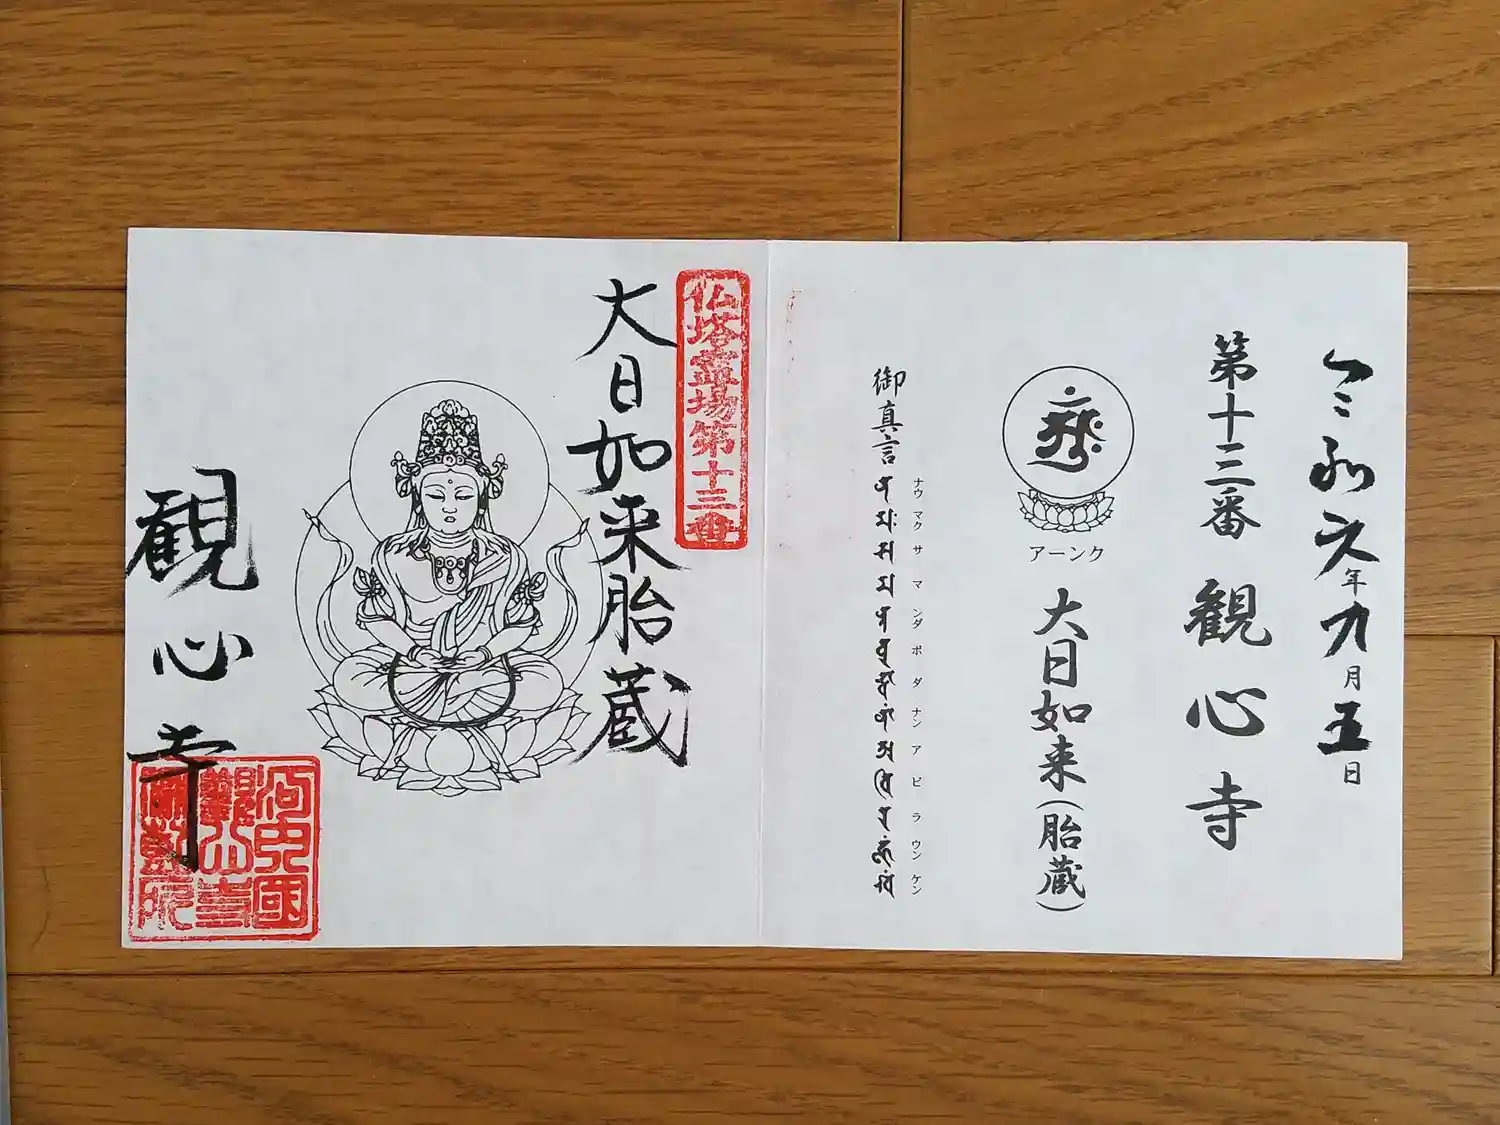 令和元年九月五日
第十三番 観心寺
アーンク
大日如来(胎蔵)
御真言
ナウマクサマンダボダナンアビラウンケン
仏塔霊場第十三番
大日如来胎蔵
観心寺
河内國